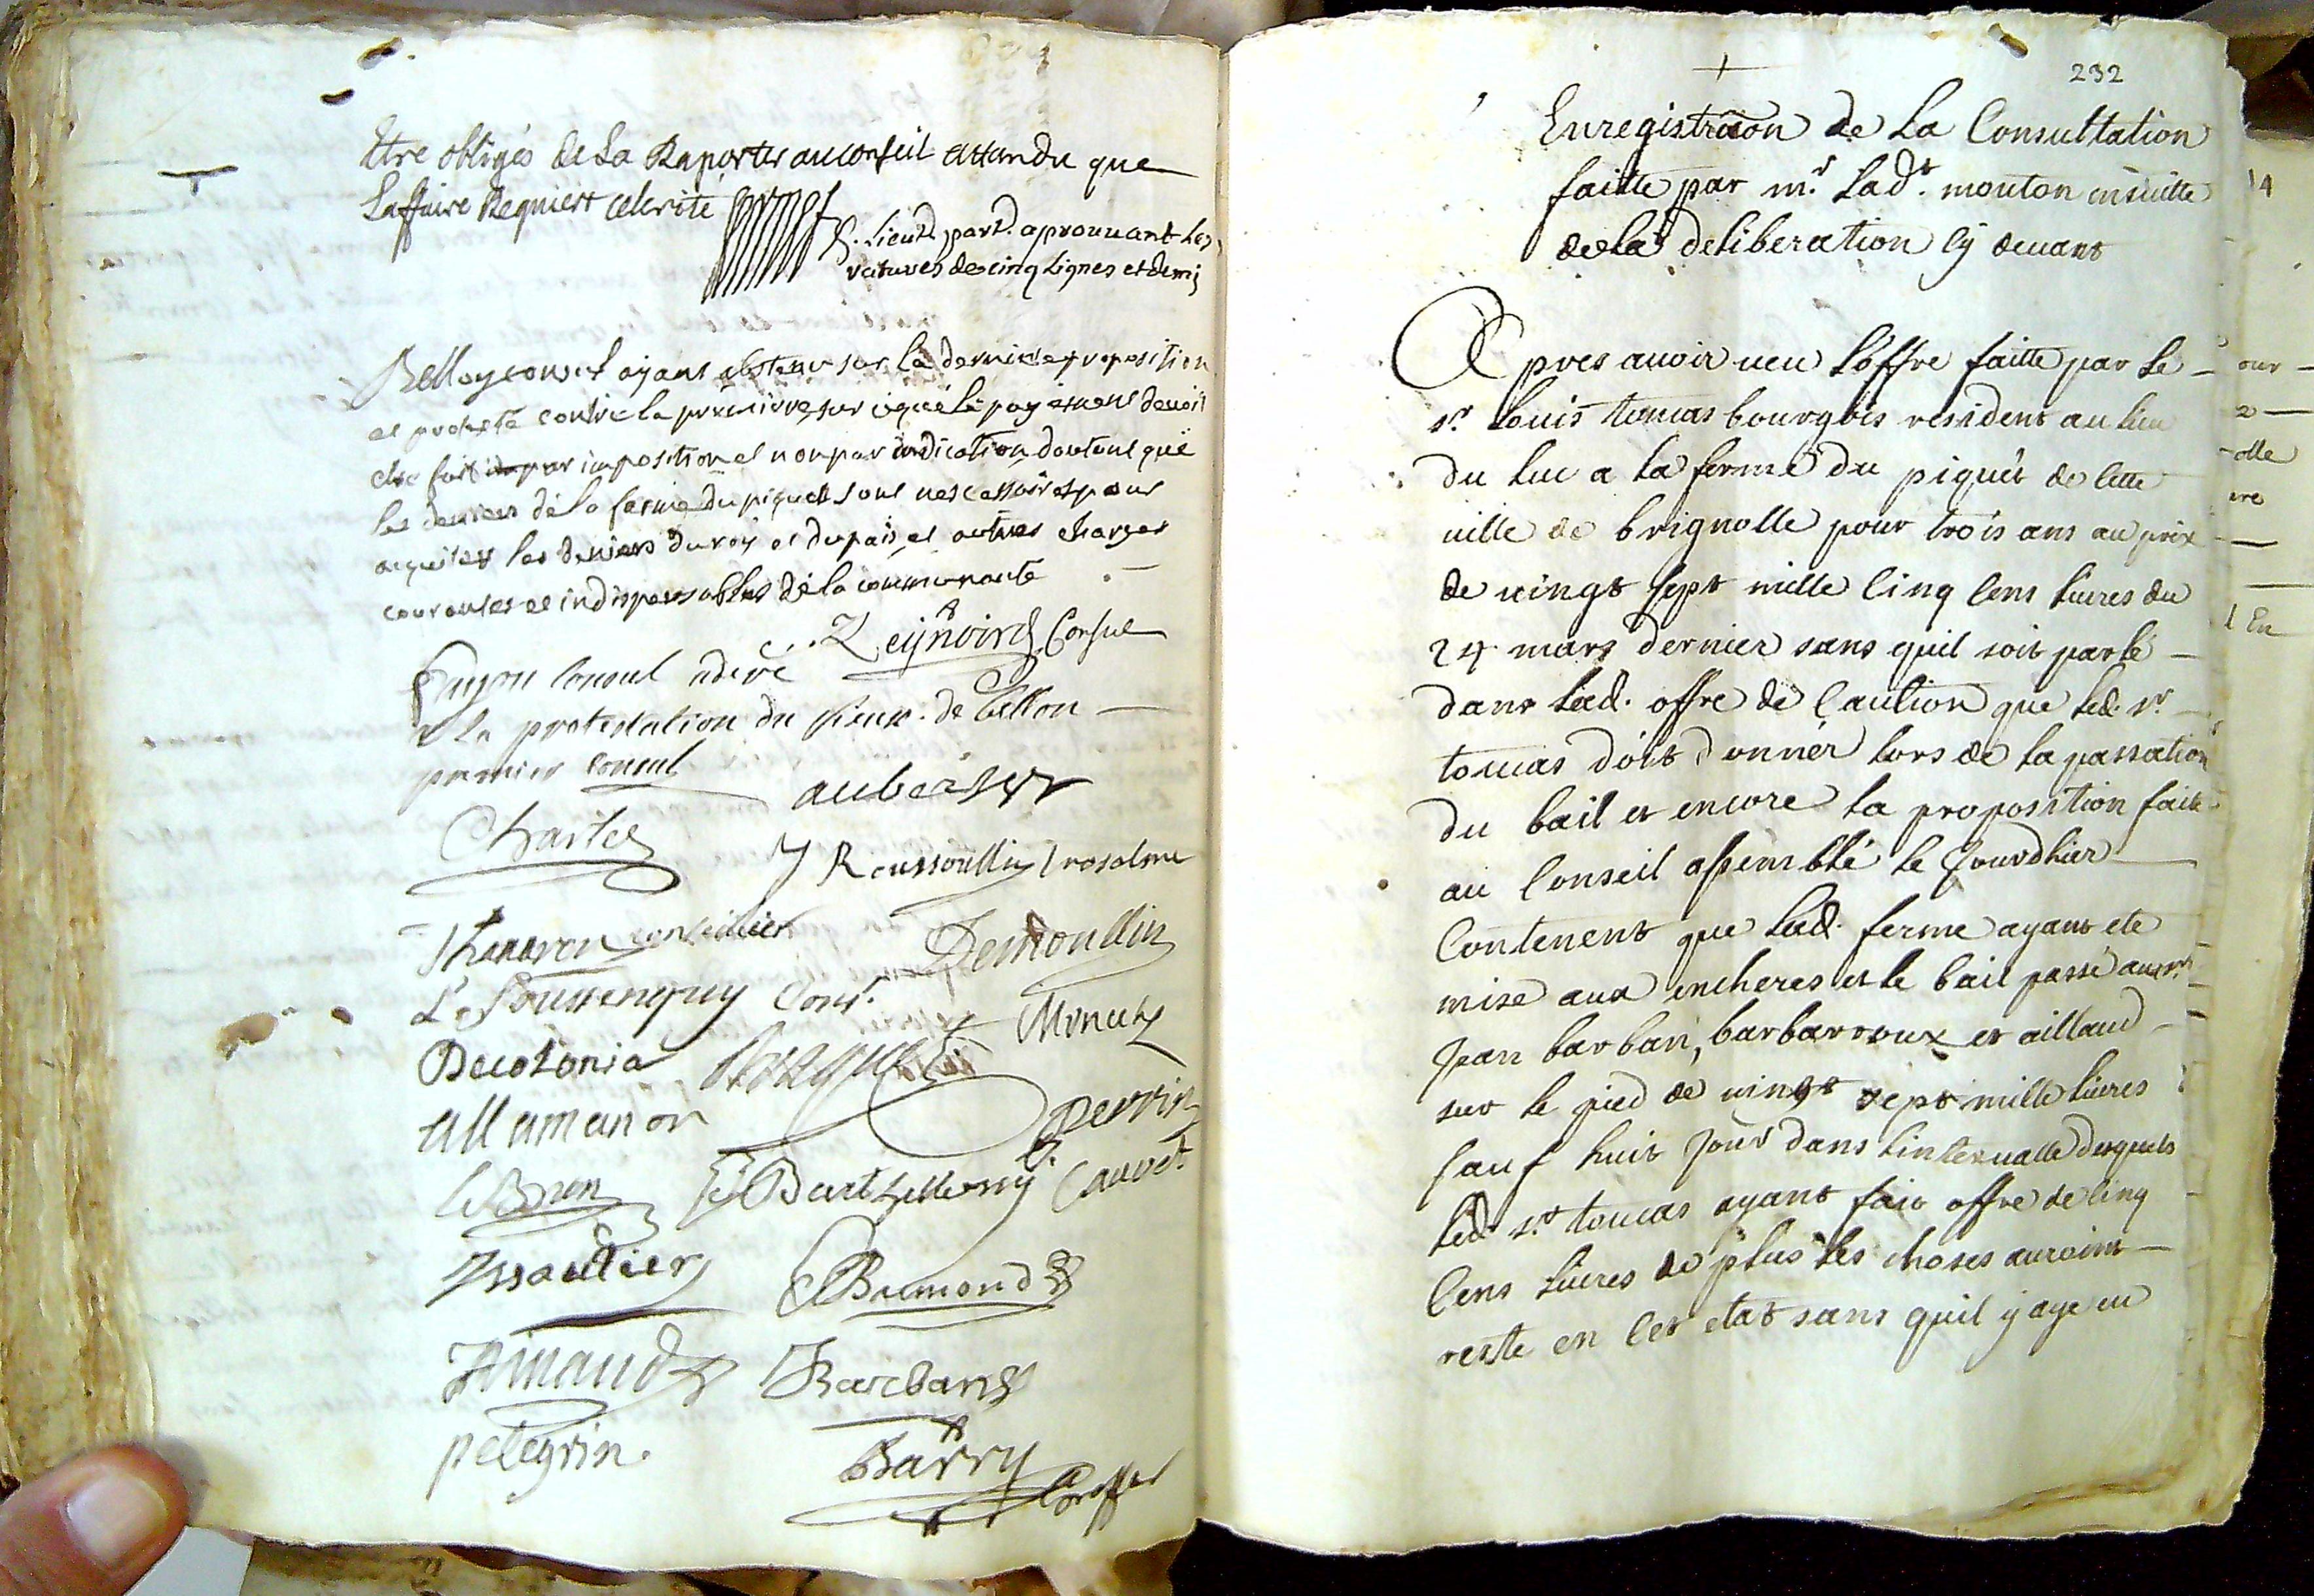 Etre obligés de La Raporter au conseil attandu que
Laffaire Requiert celerite
S. Lieut. part. aprouuant Les
ratures de cinq Lignes et demi
Bellon consul ayant obstenu sur la derniere proposition
et protesté contre la premiere, sur ce que le payement devoit
etre fait par imposition et non par indication, dautant que
les deniers de la ferme du piquet sont nescessoires pour
aquiter les deniers du roy et du pais, et autres charges
courantes et indispensables de la communauté
Reynoird Consul
Fayon Consul adere
a la protestation du sieur de bellon
premier Consul
aubert
Charles
J Roussoullin
consellier
Demoullin
Cons.r
Decolonia
Monut
allamanon
perrin
LeBron
Barthellemy
Cauvet
Issautier
Bremond
Arnaud
Barban
pelegrin.
Barry
Greffier
232
Enregistraon de La Consultation
faitte par m.r Lad.t mouton ensuitte
de la deliberation Cy deuant
Apres auoir ueu L'offre faitte par Le
s.r Louis toucas bourgois resident au lieu
du Luc a la ferme du piquet de Cette
uille de brignolle pour trois ans au prix
de uingt sept mille Cinq Cens Liures du
24 mars dernier sans quil soit parlé
dans Lad. offre de Caution que Led. s.r
toucas doit donner Lors de la passation
du bail et encore la proposition faite
au Conseil assemblé le Jourdhier
Contenent que Lad. ferme ayant ete
mise aux encheres et le bail passé aux s.rs
Jean barban, barbarroux et aillaud
sur le pied de uingt sept mille Liures
sauf huit Jour dans Linterualle desquels
Led. s.r toucas ayant fait offre de Cinq
Cens Liures de plus Les choses auroint
resté en Cet etat sans quil y aye eu